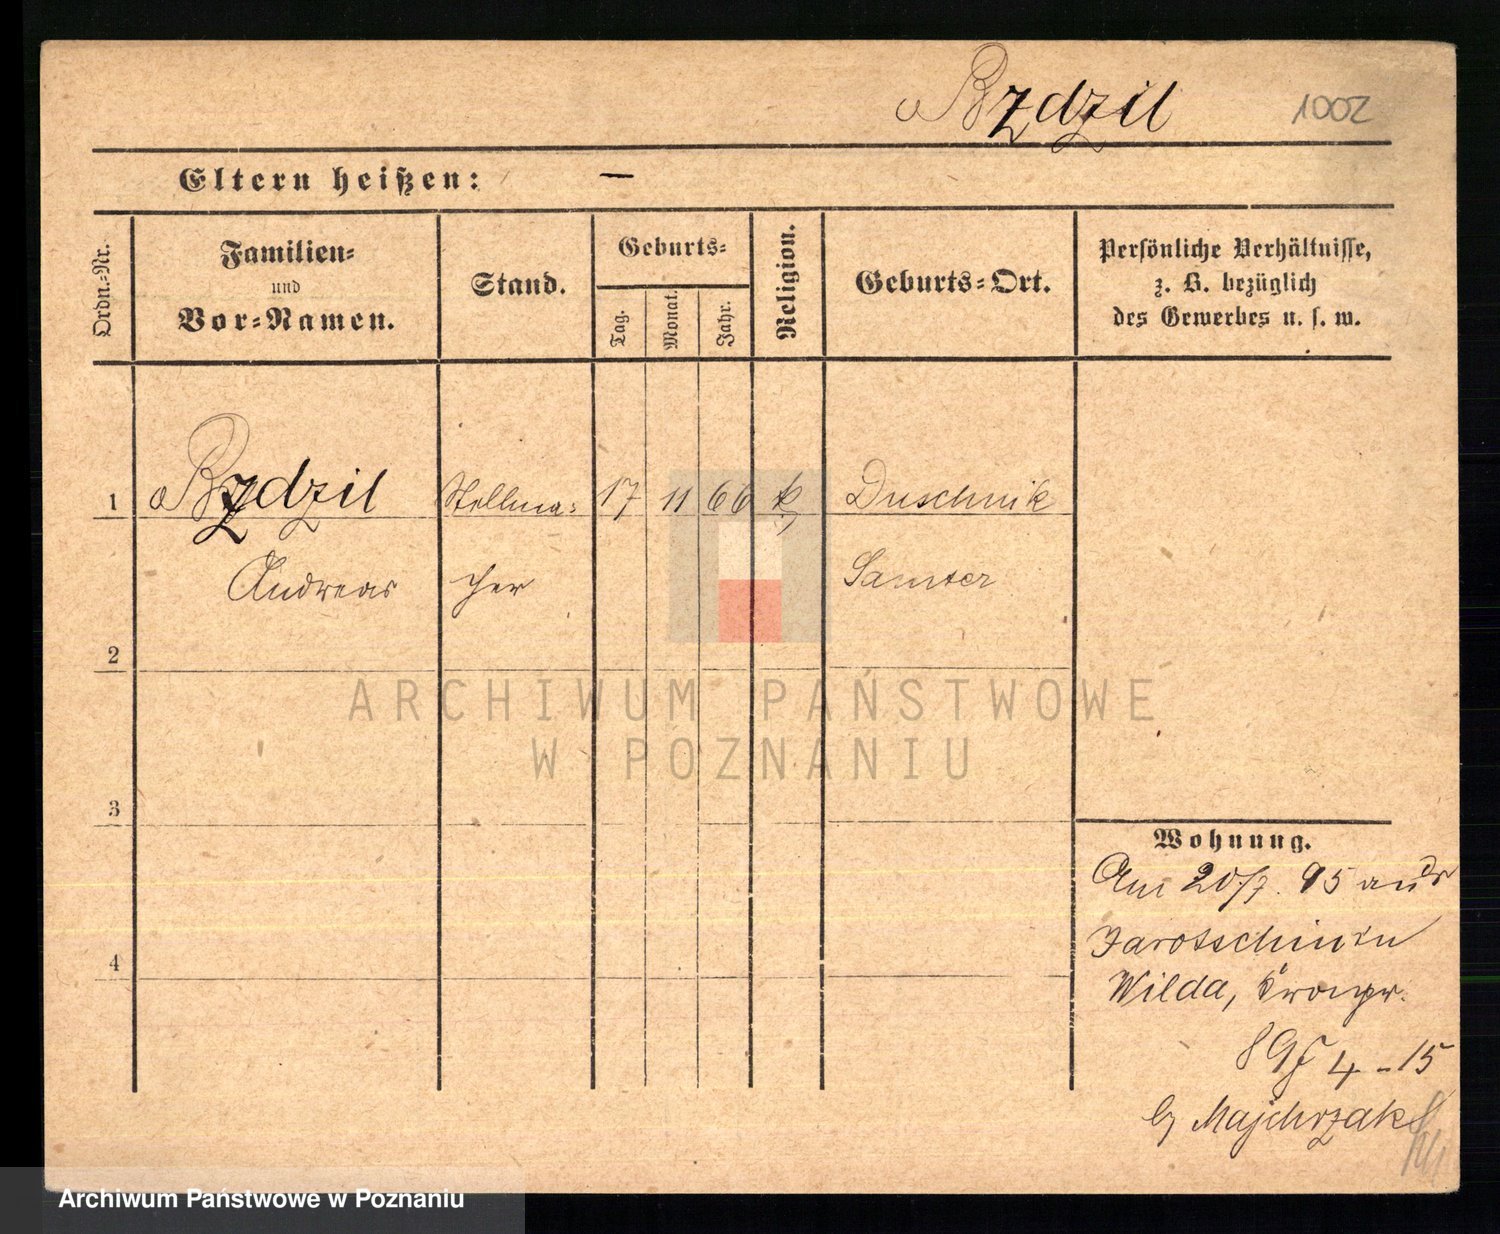 Bzdzil 1002
Eltern heißen: —
Ordn.-Nr.
Familien-
und
Vor-Namen.
Stand.
Geburts-
Tag.
Monat.
Jahr.
Religion.
Geburts-Ort.
Persönliche Verhältnisse,
z. B. bezüglich
des Gewerbes u. s. w.
1 Bzdzil Stellma- 17 11 66 k Duschnik
Andreas cher Samter
2
3
4
Wohnung.
Am 20/7. 95 aus
Jarotschin in
Wilda, Kronpr.
89 4-15
b/ Majchrzak
ARCHIWUM PAŃSTWOWE
W POZNANIU
Archiwum Państwowe w Poznaniu